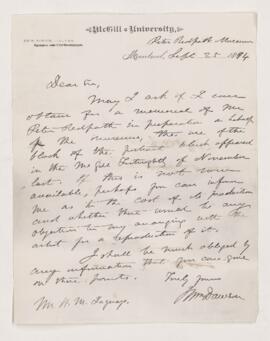 McGill University,
Peter Redpath Museum
Montreal, Sept 25 1894
Dear Sir,
May I ask if I can
obtain for a memorial of Mr
Peter Redpath in preparation
for the museum, the use of the
block of the picture which appeared
in the McGill Fortnightly of November
last. If this is not now
available, perhaps you can inform
me as to the cost of its production
and whether there would be any
objection to my arranging with the
artist for a reproduction of it.
I shall be much obliged by
any information that you can give
on these points.
Truly yours
Wm Dawson
Mr H. M.